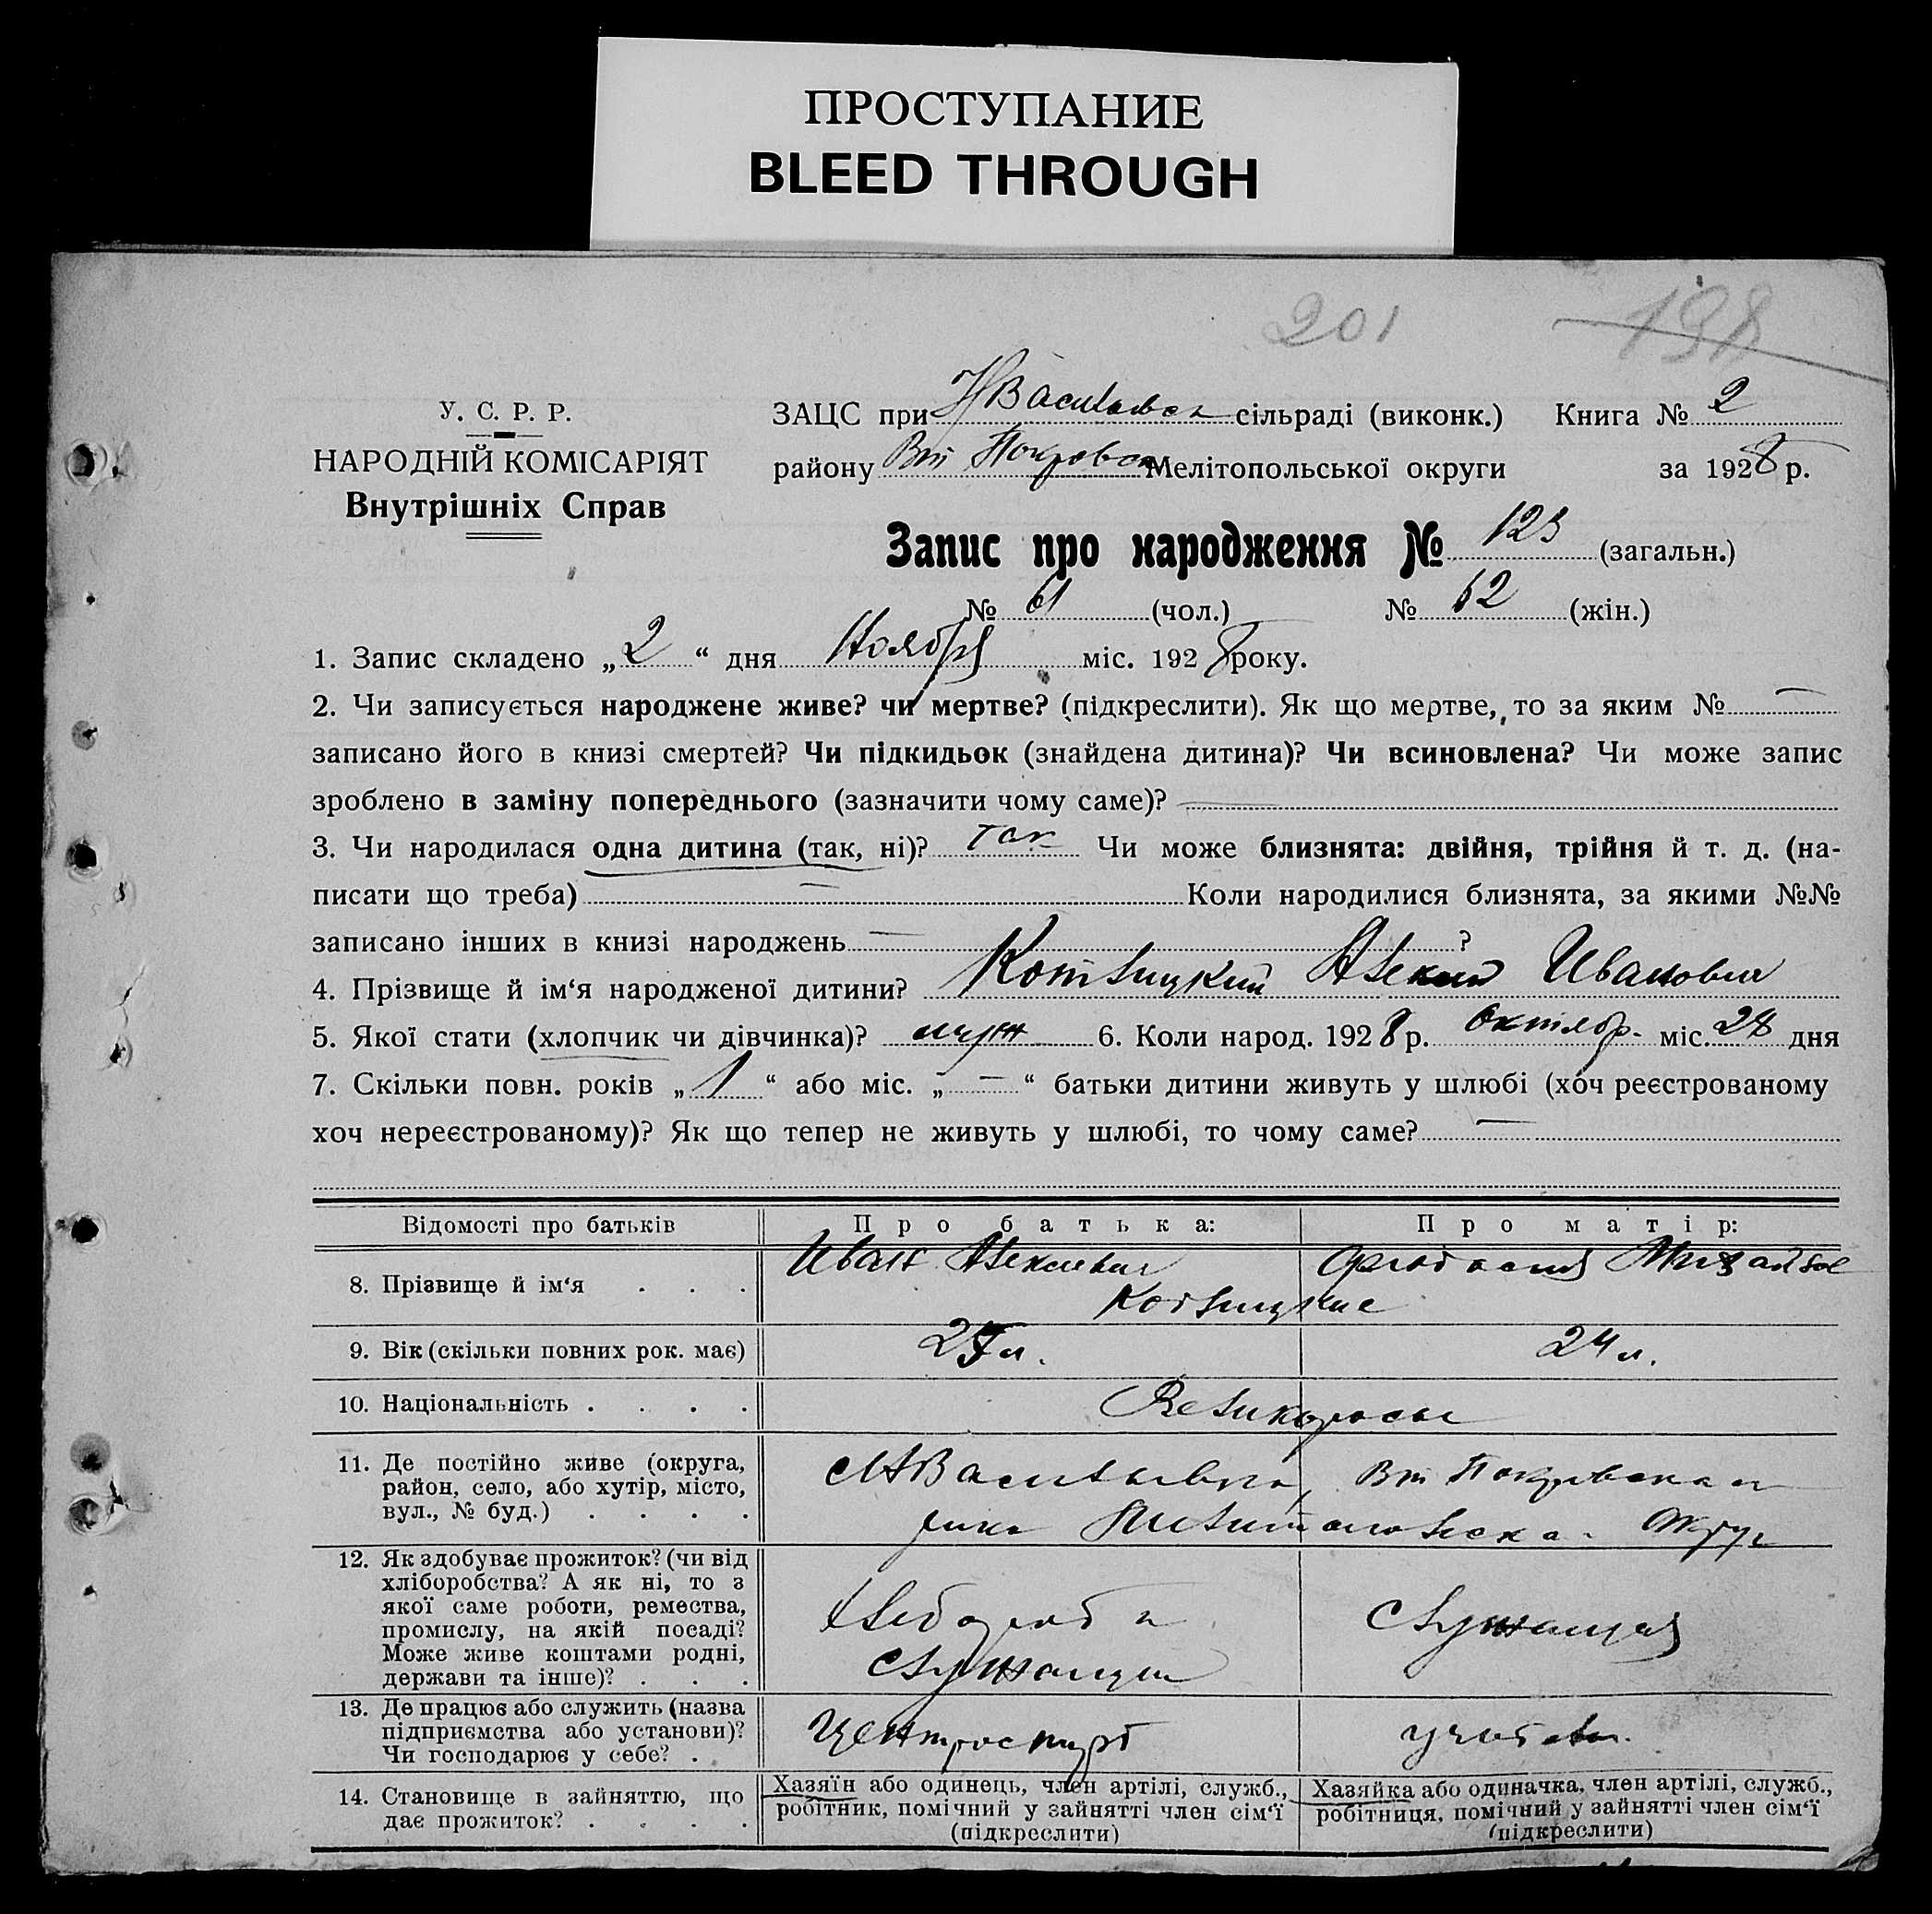 ПРОСТУПАНИЕ
BLEED THROUGH
201 198
У. С. Р. Р.
НАРОДНІЙ КОМІСАРІЯТ
Внутрішніх Справ
ЗАЦС при НВасильевск сільраді (виконк.) Книга № 2
району Вт Покровск Мелітопольської округи за 1928 р.
Запис про народження № 123 (загальн.)
№ 61 (чол.) № 62 (жін.)
1. Запис складено „2“ дня Ноября міс. 1928 року.
2. Чи записується народжене живе? чи мертве? (підкреслити). Як що мертве, то за яким № —
записано його в книзі смертей? Чи підкидьок (знайдена дитина)? Чи всиновлена? Чи може запис
зроблено в заміну попереднього (зазначити чому саме)? —
3. Чи народилася одна дитина (так, ні)? так Чи може близнята: двійня, трійня й т. д. (на-
писати що треба) — Коли народилися близнята, за якими №№
записано інших в книзі народжень — ?
4. Прізвище й ім‘я народженої дитини? Котвицкий Иванович
5. Якої стати (хлопчик чи дівчинка)? муж 6. Коли народ. 1928 р. Октябр. міс. 28 дня
7. Скільки повн. років „1“ або міс. „—“ батьки дитини живуть у шлюбі (хоч реєстрованому
хоч нереєстрованому)? Як що тепер не живуть у шлюбі, то чому саме? —
Відомості про батьків Про батька: Про матір:
8. Прізвище й ім‘я . . . Иван Алексеевич
9. Вік (скільки повних рок. має) 27 л. 24 л.
10. Національність . . . . Великоросы
11. Де постійно живе (округа,
район, село, або хутір, місто,
вул., № буд.) . . . .
НВасильевка, Вт Покровская
Мелитопольска. Округ
12. Як здобуває прожиток? (чи від
хліборобства? А як ні, то з
якої саме роботи, ремества,
промислу, на якій посаді?
Може живе коштами родні,
держави та інше)? . . .
Хлебороб и
служащий
Служащая
13. Де працює або служить (назва
підприємства або установи)?
Чи господарює у себе? .
Центроспирт
14. Становище в зайняттю, що
дає прожиток? . . . .
Хазяїн або одинець, член артілі, служб.,
робітник, помічний у зайнятті член сім‘ї
(підкреслити)
Хазяйка або одиначка, член артілі, служб.,
робітниця, помічний у зайнятті член сім‘ї
(підкреслити)